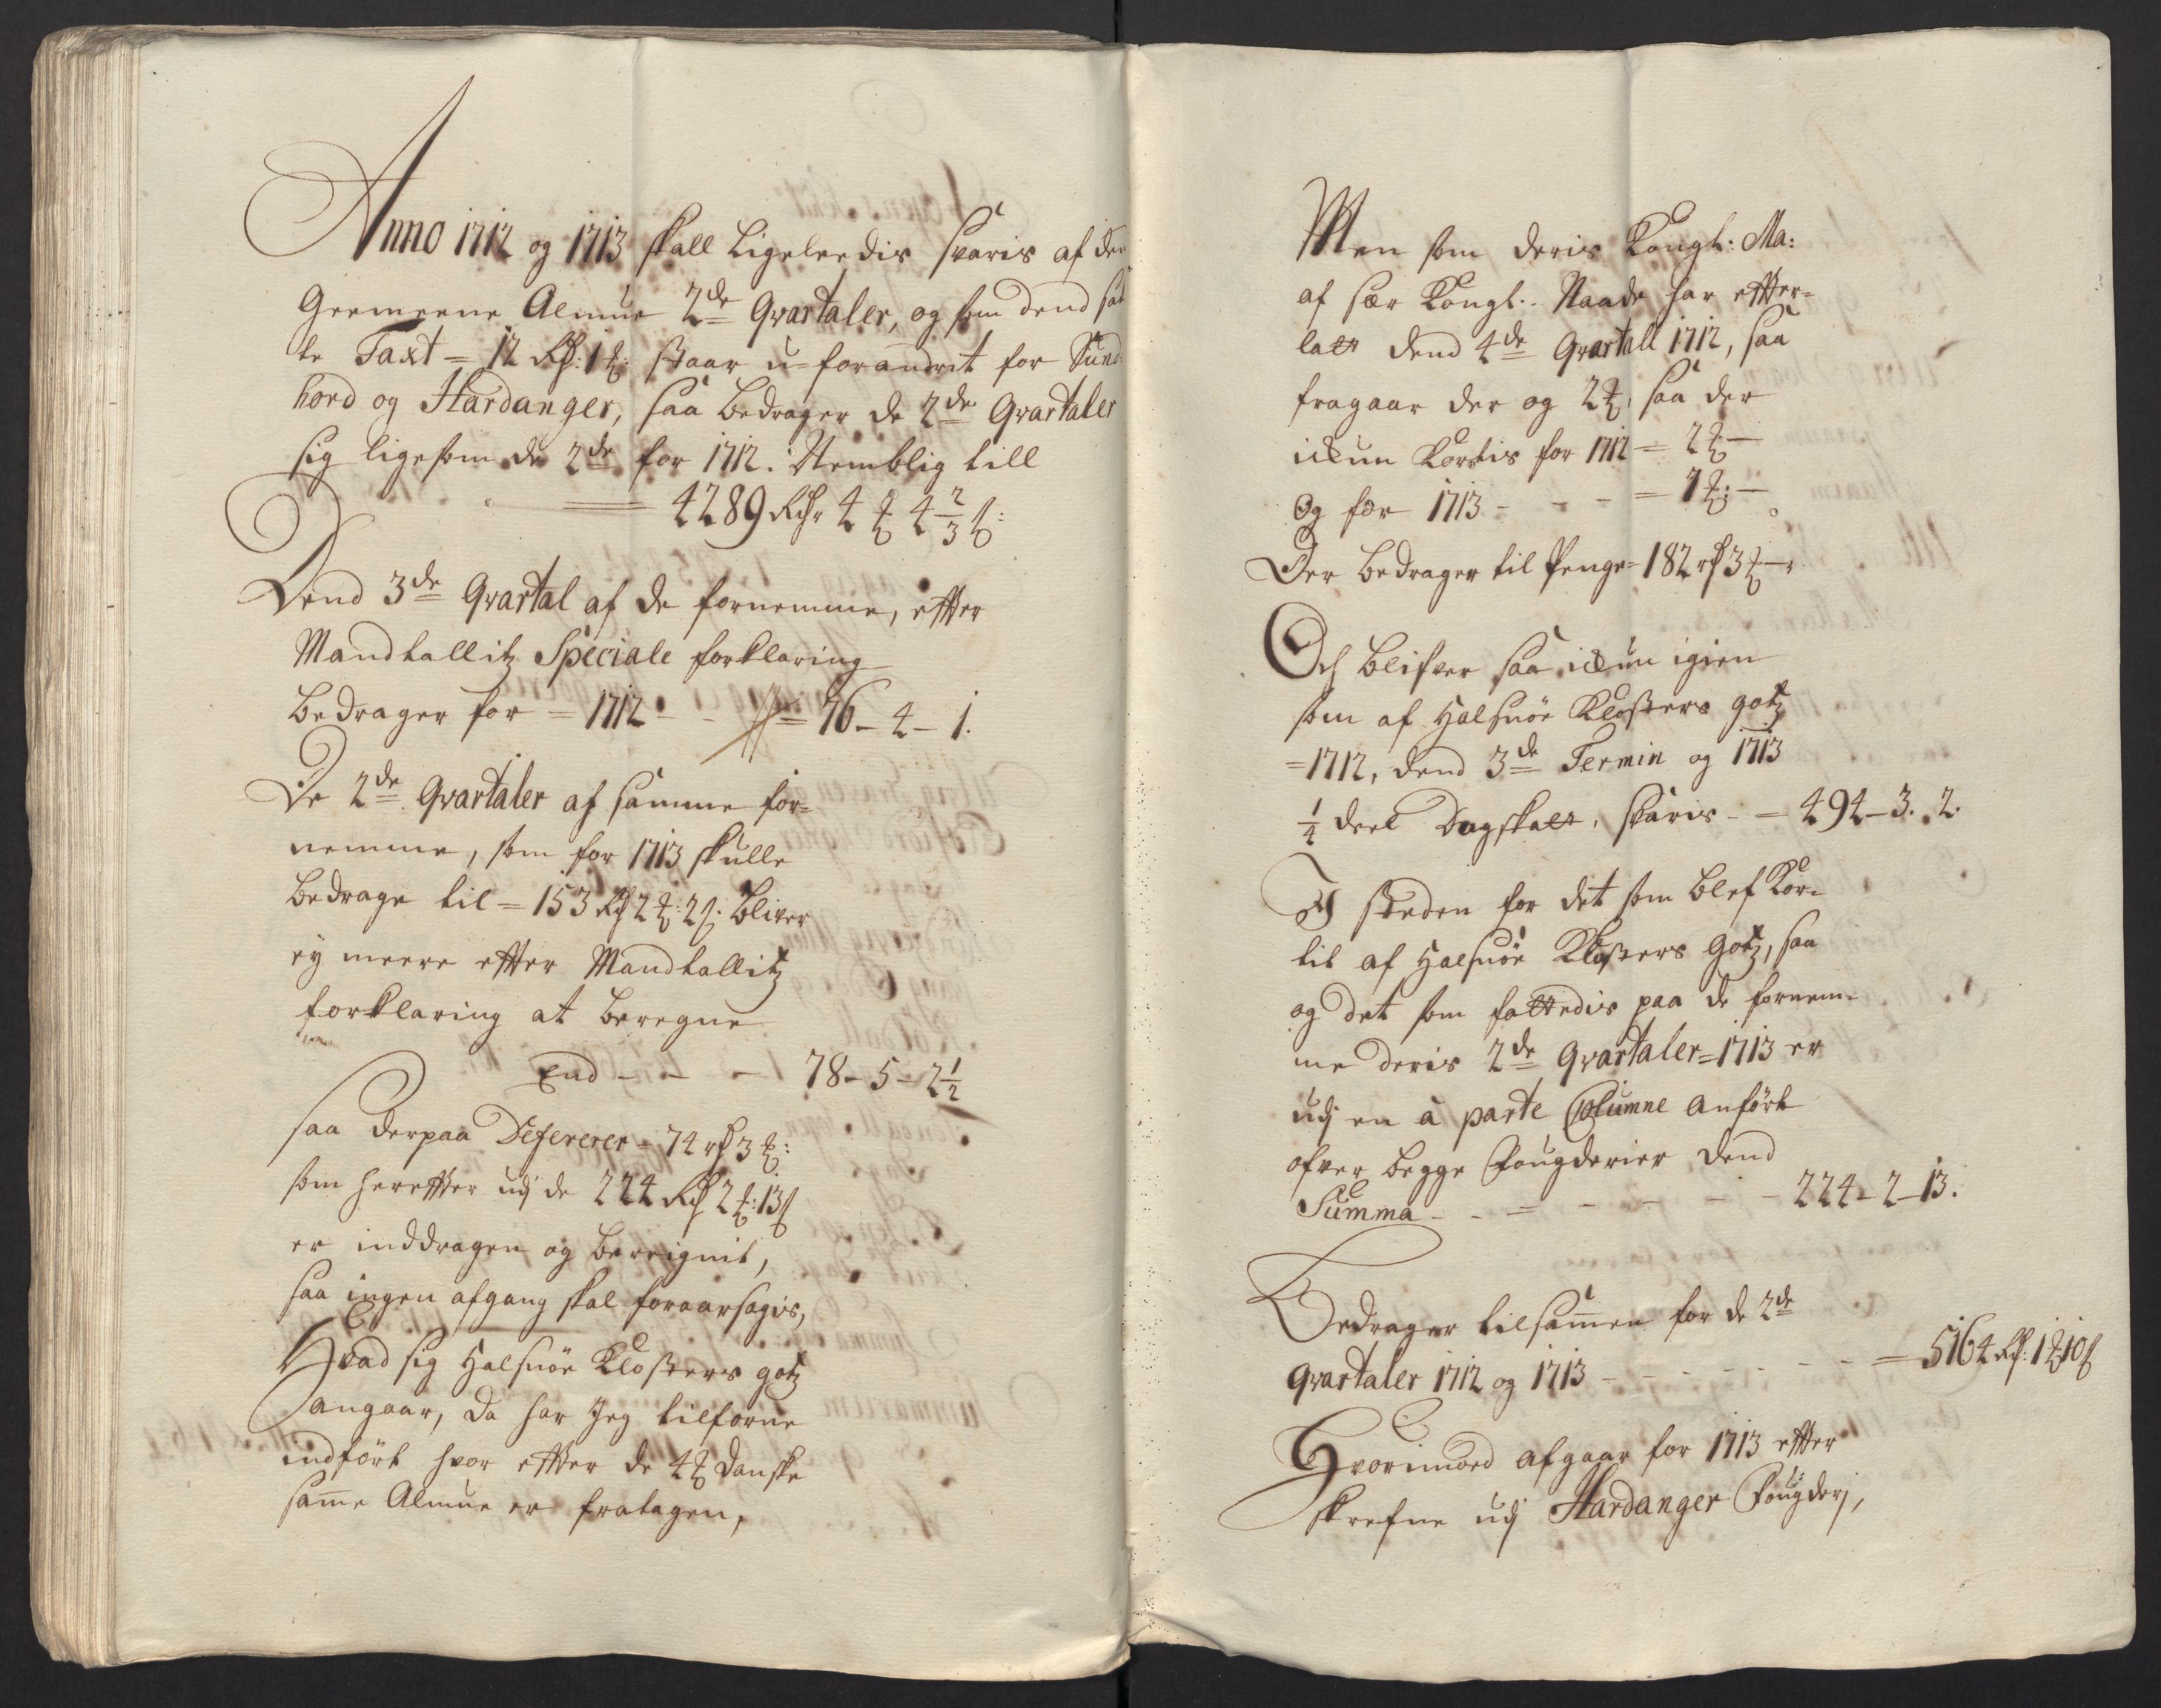 Anno 1712 og 1713 skall Ligeleedis svaris af den
Gemeene Almue 2de Qvartaler, og som dend sat
te Taxt = 12 Rd: 1 : staar u-forandrit for Sund:
hord og Hardanger, saa bedrager de 2de Qvartaler
sig ligesom de 2de for 1712. Nemblig till
4289 Rdr 4 4 2/3
Dend 3de Qvartal af de fornemme, efter
Mandtallitz Speciale forklaring
bedrager for = 1712 - - = 76 - 4 - 1.
De 2de Qvartaler af samme for=
nemme, som for 1713 skulle
bedrage til = 153 Rd 2 : 2 . bliver
ey meere efter Mandtallitz
forklaring at beregne
End - - - 78 - 5 - 2 1/2
saa derpaa Defererer = 74 rd 3 :
som herefter udj de 224 Rd 2 : 13
er inddragen og bereignit,
saa ingen afgang skal foraarsagis,
Hvad sig Halsnöe Klosters gotz
angaar, da har Jeg tilforne
indfört hvor efter de 4 danske
samme Almue er fratagen,
Men som deris Kongl: Ma:
af sær Kongl: Naade har efter=
latt dend 4de Qvartall 1712, saa
fragaar der og 2 , saa der
ickun Kortis for 1712 = 2 —
Og for 1713 - - - = 1 : —
Der bedrager til Penge = 182 rd 3 —
Och blifver saa ickun igien
som af Halsnöe Klosters gotz
= 1712, dend 3de Termin og 1713
1/4 deel Dagskatt, svaris - = 494 - 3. 2.
I steden for det som blef Kor=
tit af Halsnöe Klosters Gotz, saa
og det som fattedis paa de fornem=
me deris 2de Qvartaler = 1713 er
udj en á parte Columne anfört
ofver begge Fougderier dend
Summa - - = - - - - 224 - 2 - 13.
Bedrager tilsammen for de 2de
Qvartaler 1712 og 1713 - - - - - - = 5164 Rd: 1 10
Hvorimod afgaar for 1713 efter
skrefne udj Hardanger Fougderj,